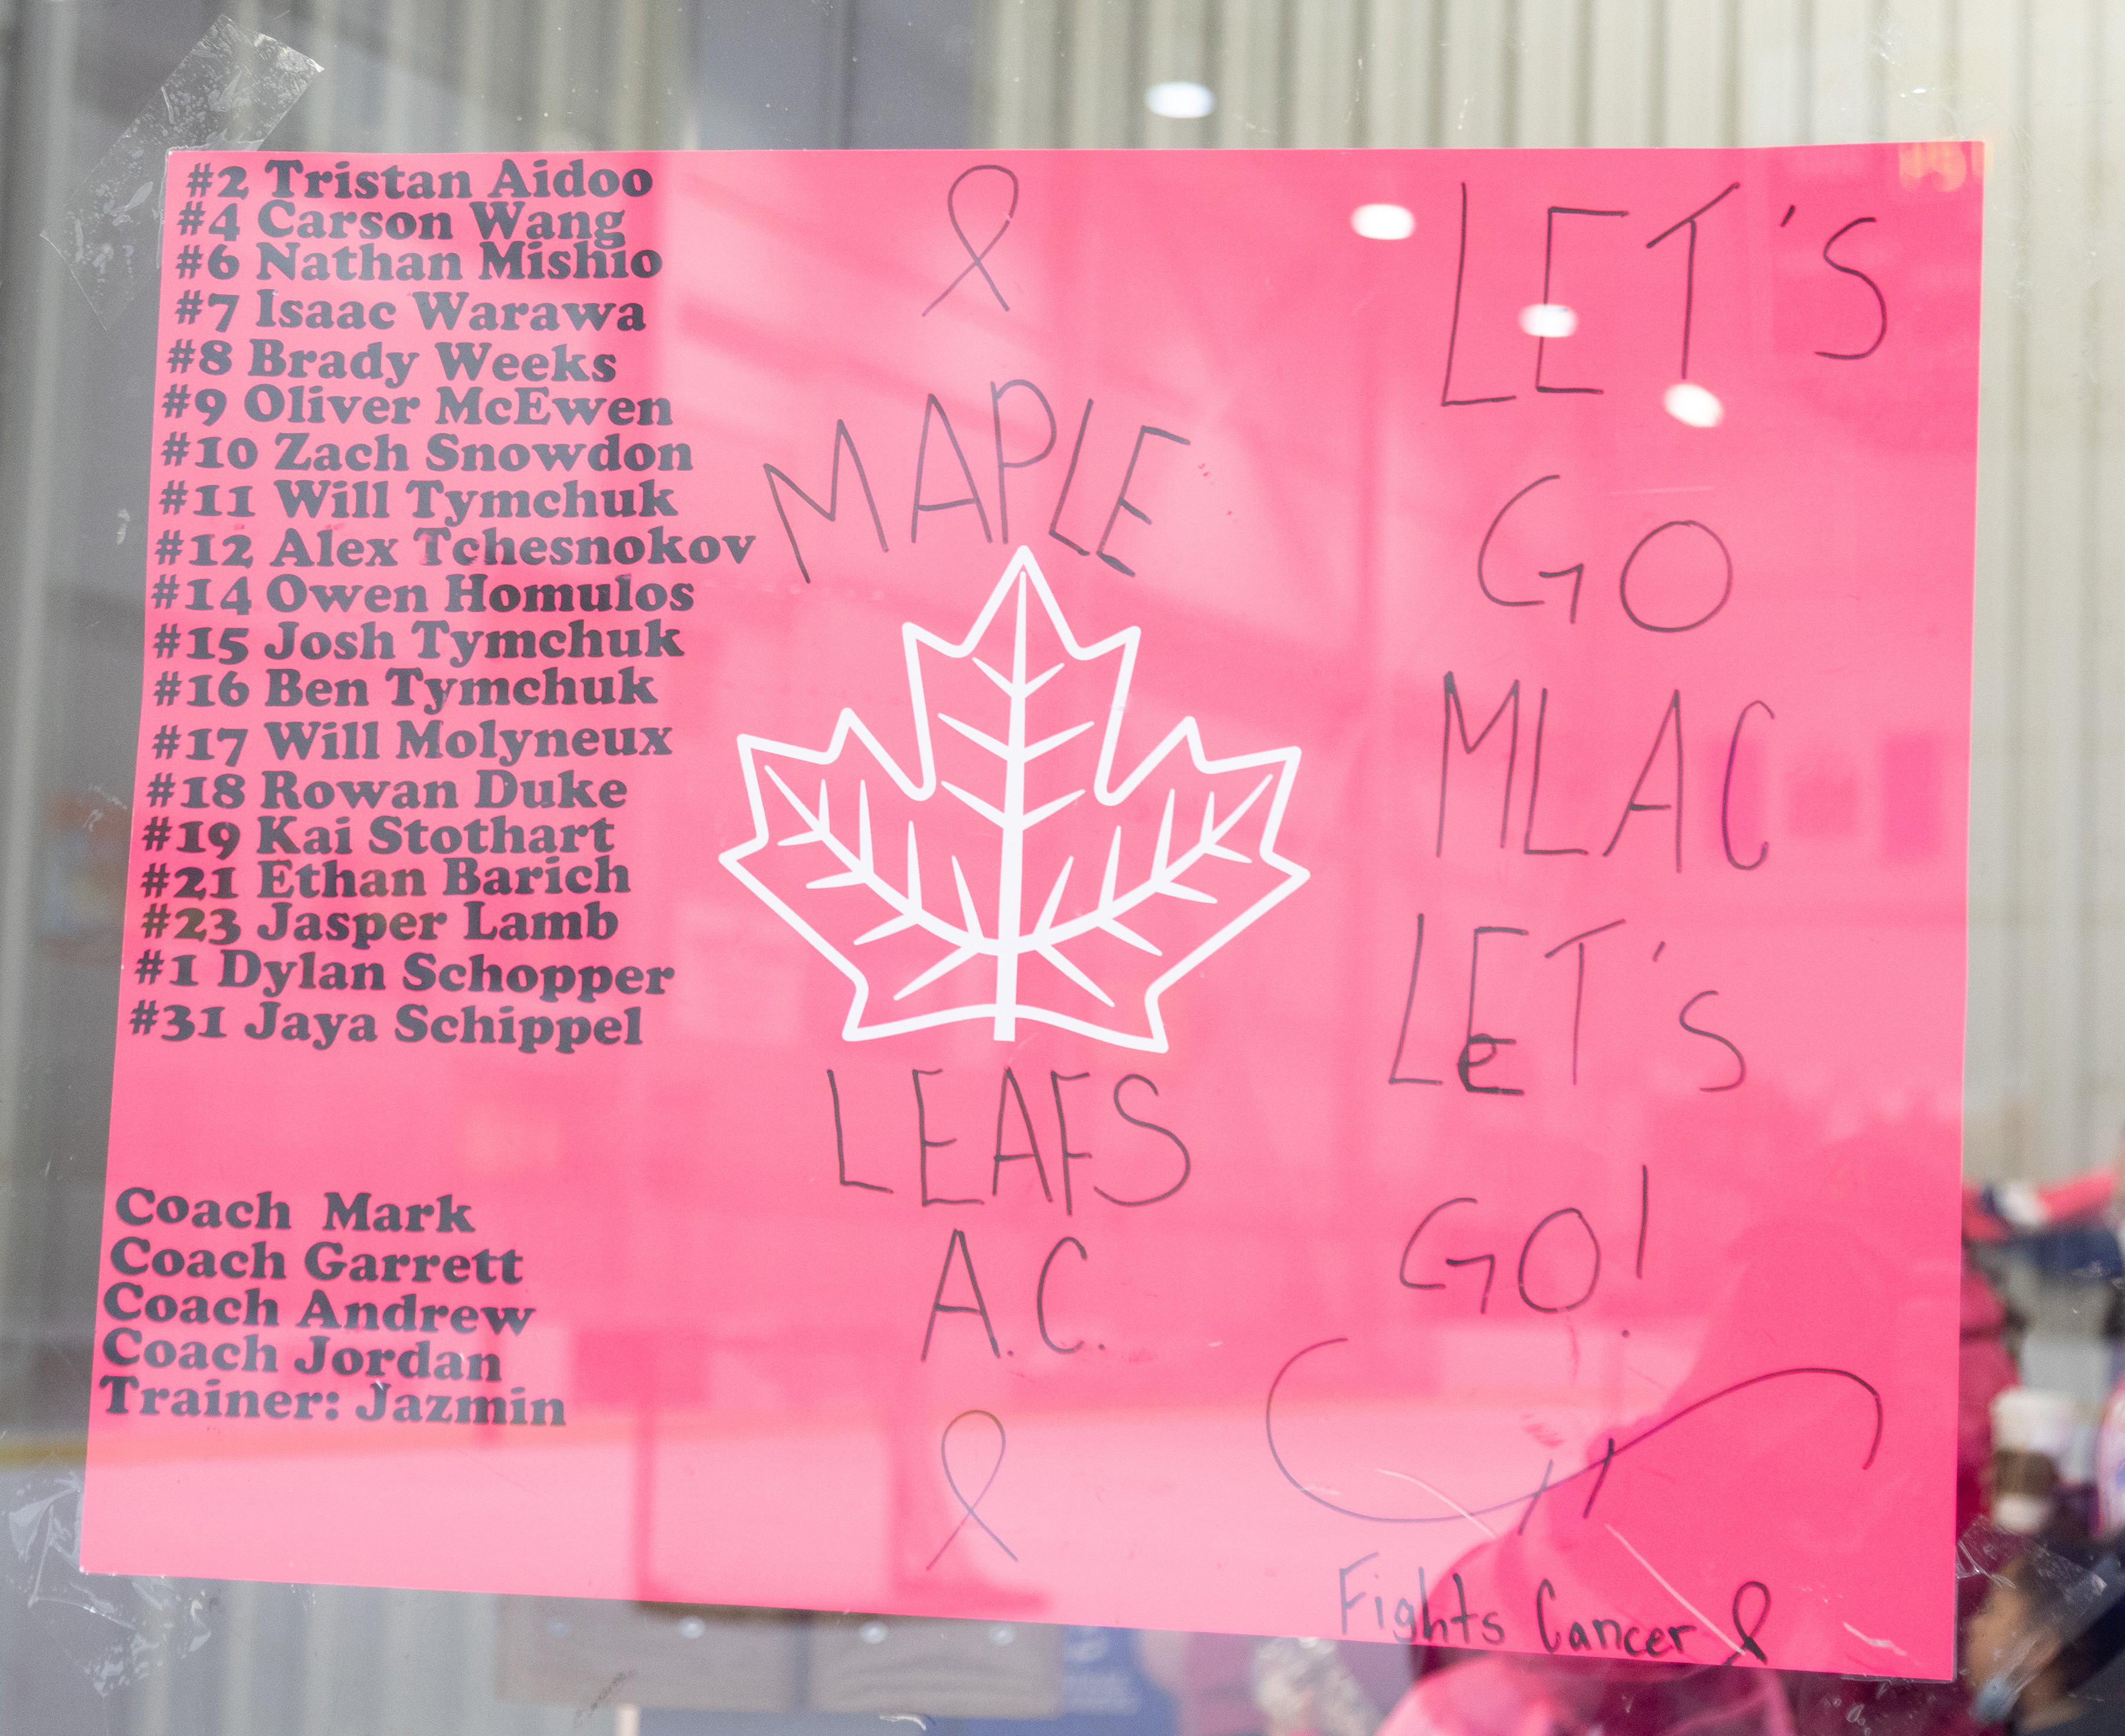 #2 Tristan Aidoo
#4 Carson Wang
#6 Nathan Mishio
#7 Isaac Warawa
#8 Brady Weeks
#9 Oliver McEwen
#10 Zach Snowdon
#11 Will Tymchuk
#12 Alex Tchesnokov
#14 Owen Homulos
#15 Josh Tymchuk
#16 Ben Tymchuk
#17 Will Molyneux
#18 Rowan Duke
#19 Kai Stothart
#21 Ethan Barich
#23 Jasper Lamb
#1 Dylan Schopper
#31 Jaya Schippel
Coach Mark
Coach Garrett
Coach Andrew
Coach Jordan
Trainer: Jazmin
MAPLE
LEAFS
A.C.
LET'S
GO
MLAC
LET's
GO!
Fights Cancer